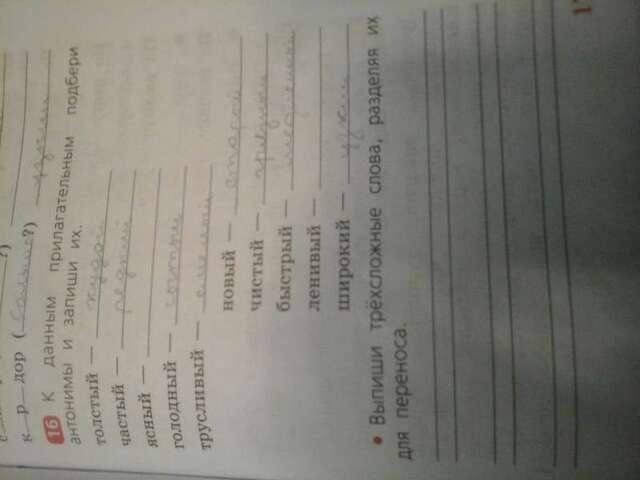 ?)
к—р—дор (сильно?) узкий
16 К данным прилагательным подбери
антонимы и запиши их.
толстый — худой
частый — редкий
ясный —
голодный — сытый
трусливый — смелый
новый — старый
чистый — грязный
быстрый — медленный
ленивый —
широкий — узкий
• Выпиши трёхсложные слова, разделяя их
для переноса.